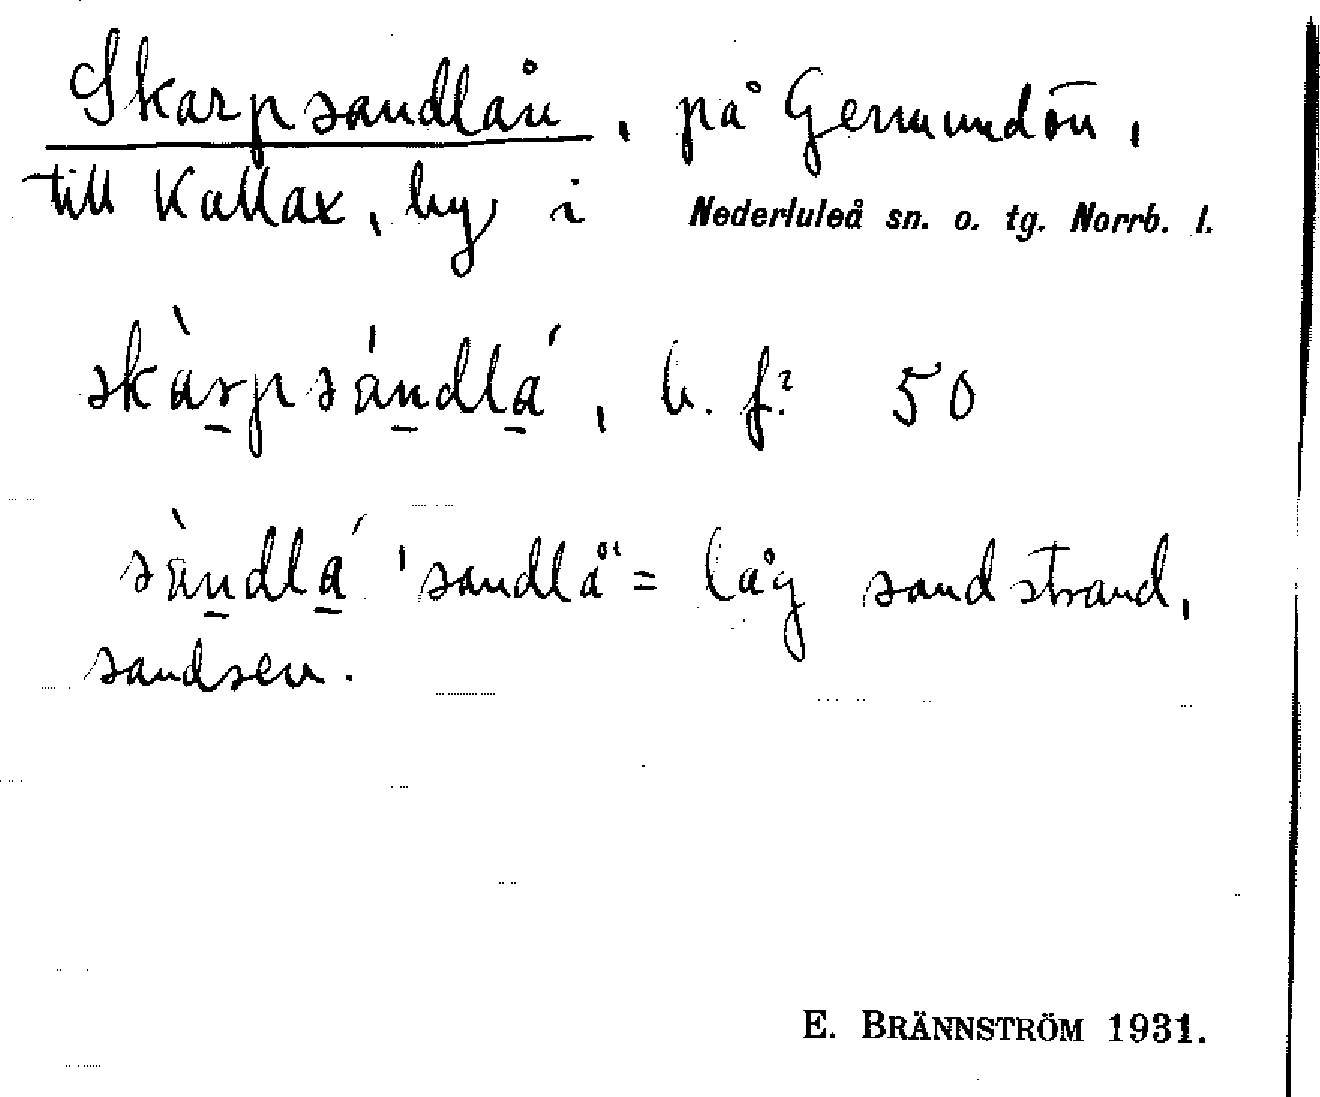 Skarpsandlån, på Germundön,
till Kallax, by i Nederluleå sn. o. tg. Norrb. l.
skàrpsándlá, b. f. 50
sàndlá 'sandlå' = låg sandstrand,
sandsen.
E. BRÄNNSTRÖM 1931.